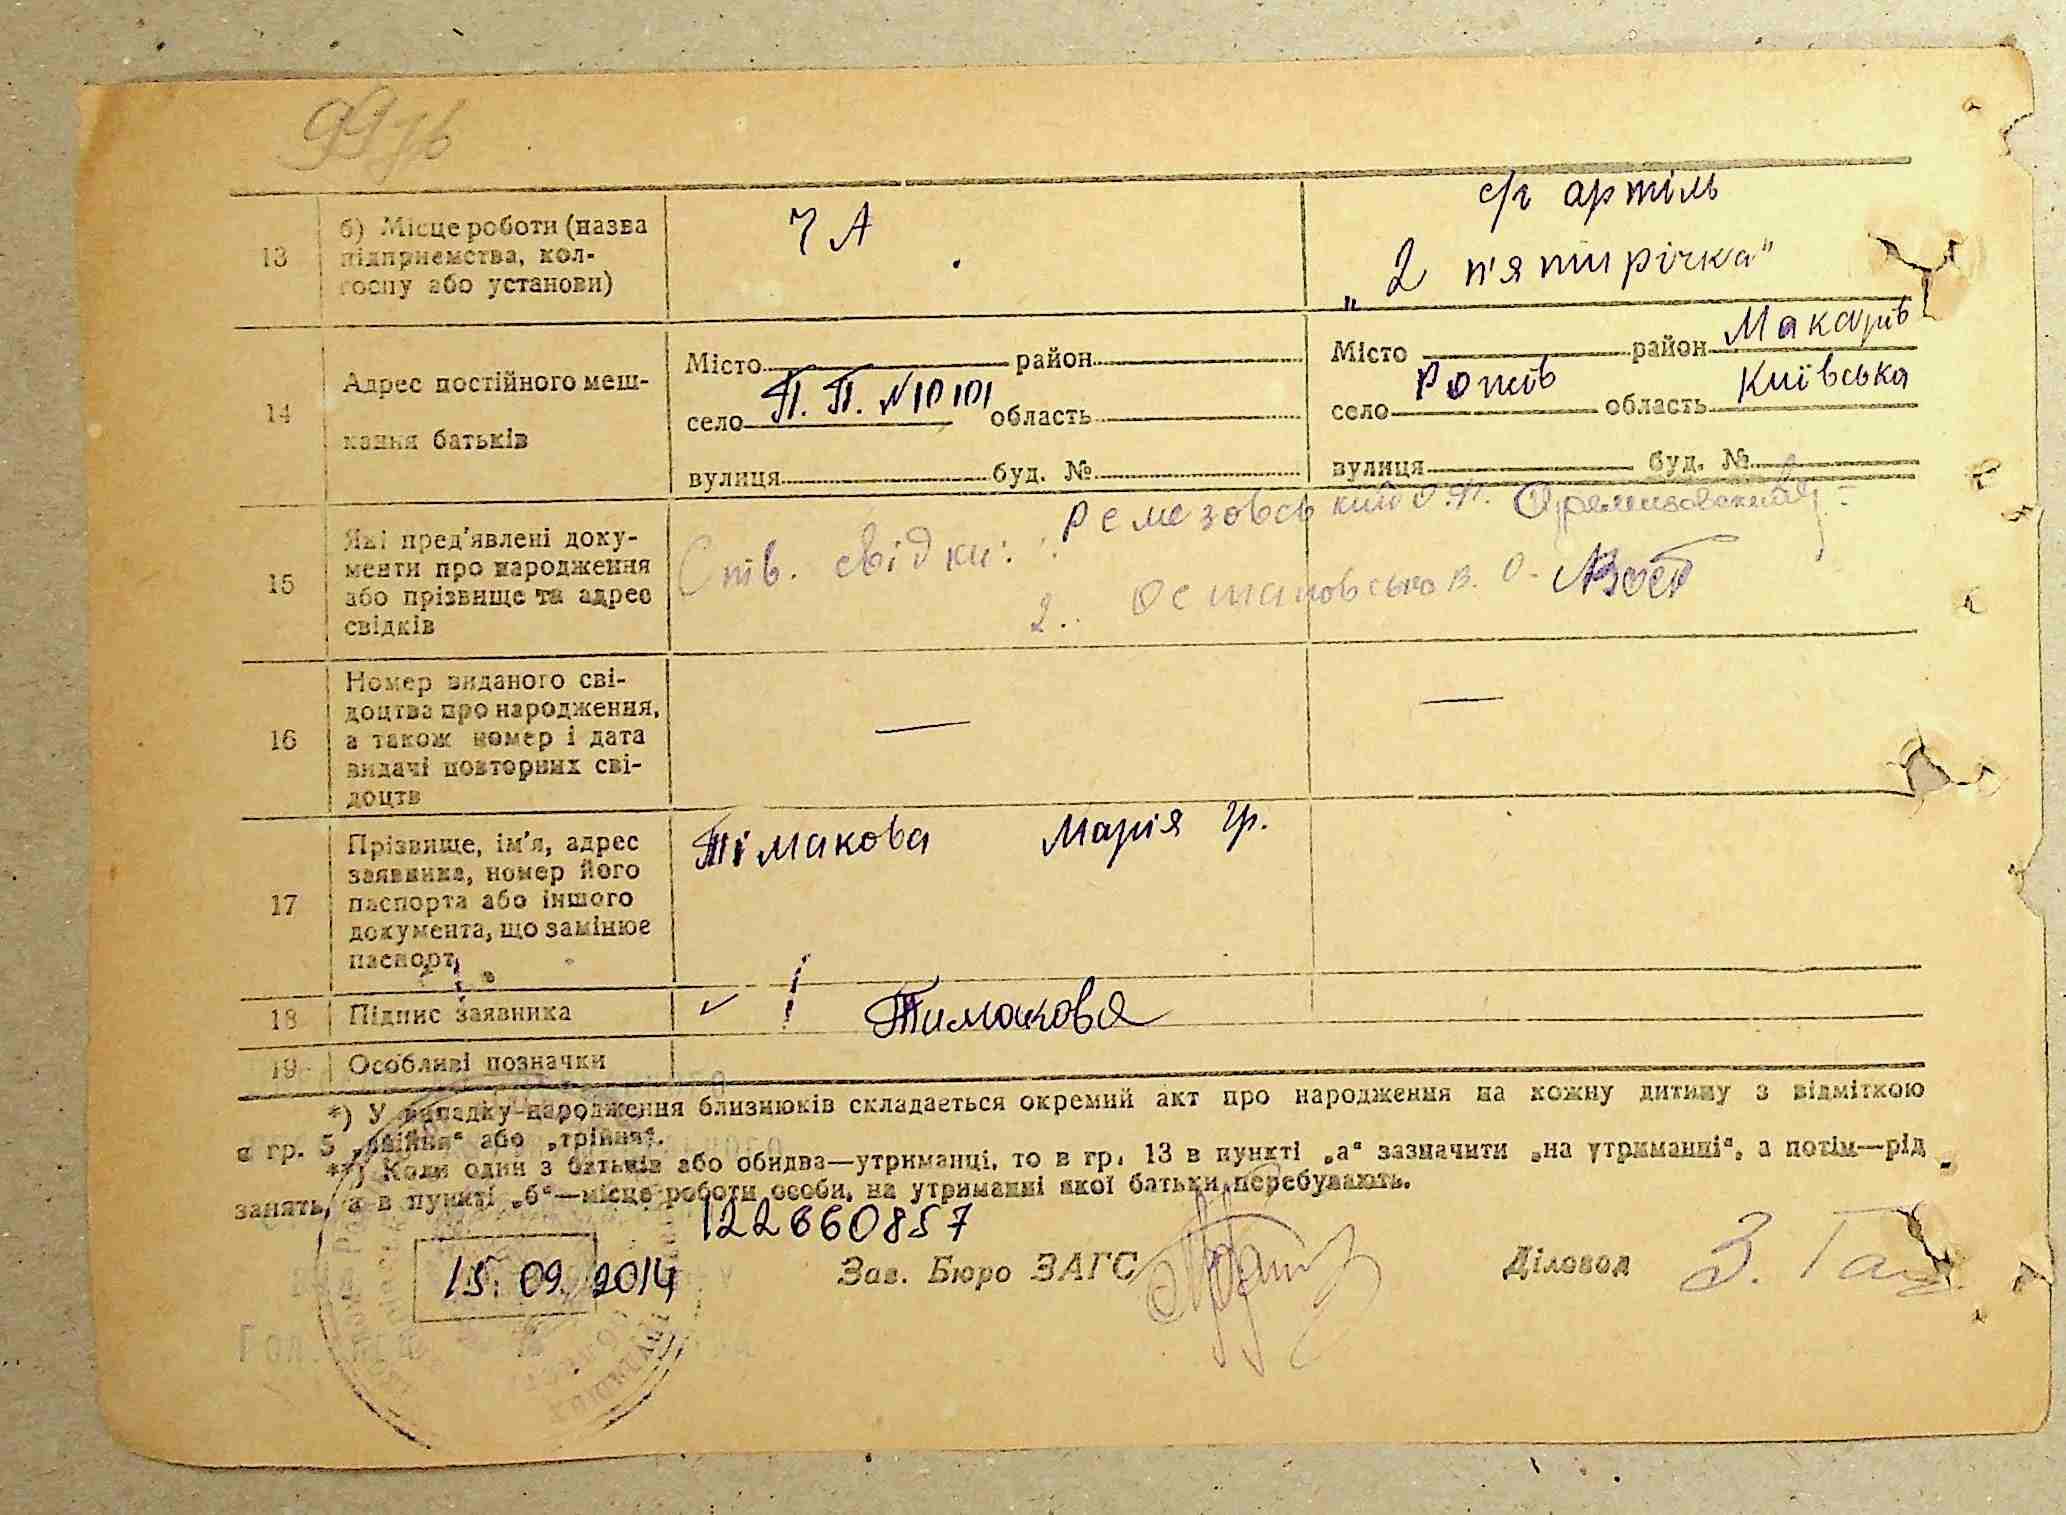 99
13
б) Місце роботи (назва
підприємства, кол-
госпу або установи)
ЧА
с/г артіль
„2 п'ятирічка"
14
Адрес постійного меш-
кання батьків
Місто район
село П. П. №10101 область
вулиця буд. №
Місто район Макарів
село Рожів область Київська
вулиця буд. №
15
Які пред'явлені доку-
менти про народження
або прізвище та адрес
свідків
Ств. свідки: Ремезовський
2.
16
Номер виданого сві-
доцтва про народження,
а також номер і дата
видачі повторних сві-
доцтв
—
—
17
Прізвище, ім'я, адрес
заявника, номер його
паспорта або іншого
документа, що замінює
паспорт
Тімакова Марія Гр.
18
Підпис заявника
Тимакова
19
Особливі позначки
*) У випадку народження близнюків складається окремий акт про народження на кожну дитину з відміткою
в гр. 5 „двійня" або „трійня".
**) Коли один з батьків або обидва—утриманці, то в гр. 13 в пункті „а" зазначити „на утриманні", а потім—рід
занять, а в пункті „б"—місце роботи особи, на утриманні якої батьки перебувають.
122660857
15.09.2014
Зав. Бюро ЗАГС
Діловод З.